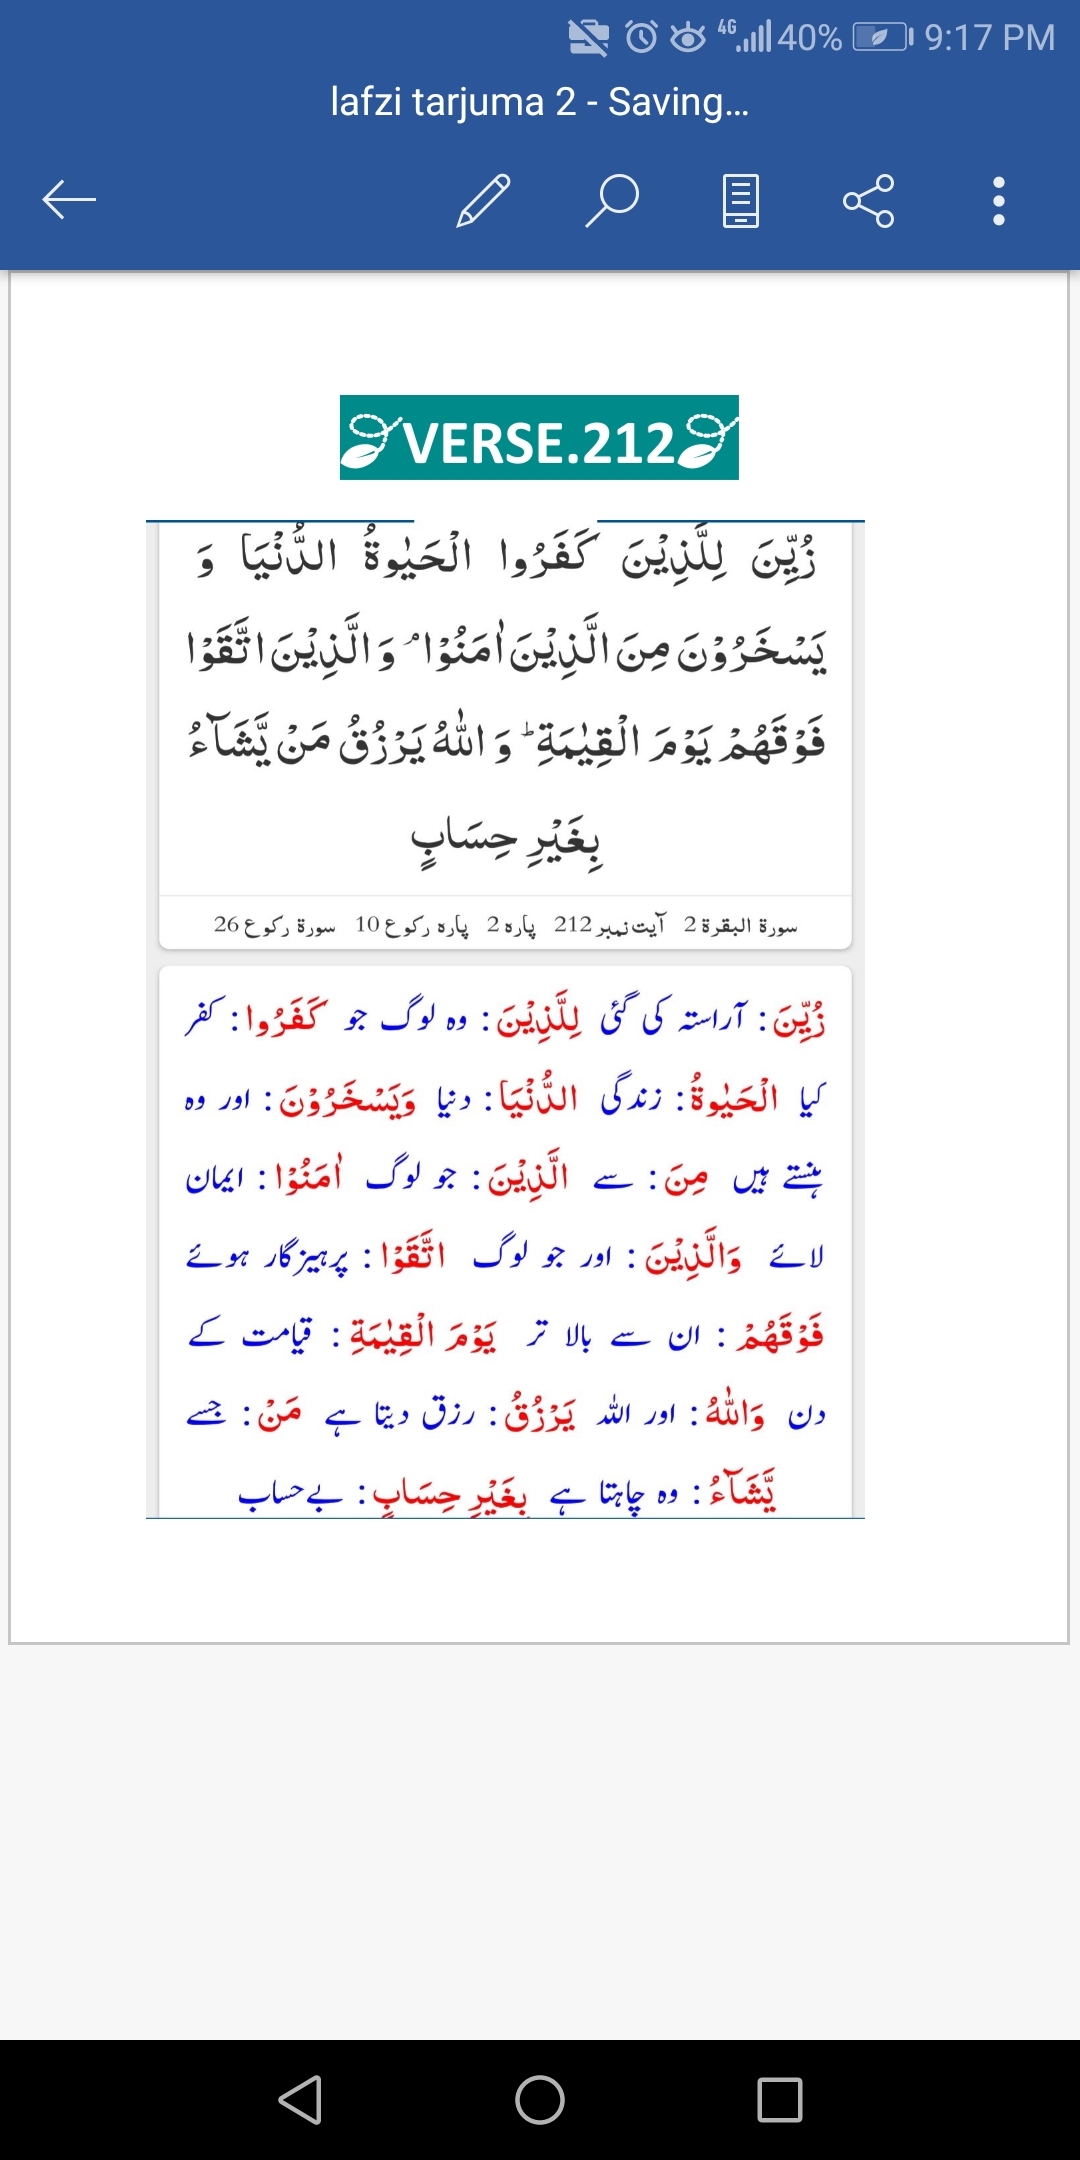 4G 40% 9:17 PM
lafzi tarjuma 2 - Saving...
VERSE.212
زُيِّنَ لِلَّذِيْنَ كَفَرُوا الْحَيٰوةُ الدُّنْيَا وَ
يَسْخَرُوْنَ مِنَ الَّذِيْنَ اٰمَنُوْا ۘ وَ الَّذِيْنَ اتَّقَوْا
فَوْقَهُمْ يَوْمَ الْقِيٰمَةِ ؕ وَ اللّٰهُ يَرْزُقُ مَنْ يَّشَآءُ
بِغَيْرِ حِسَابٍ
سورة البقرة 2 آیت نمبر 212 پارہ 2 پارہ رکوع 10 سورۃ رکوع 26
زُيِّنَ : آراستہ کی گئی لِلَّذِيْنَ : وہ لوگ جو كَفَرُوا : کفر
کیا الْحَيٰوةُ : زندگی الدُّنْيَا : دنیا وَيَسْخَرُوْنَ : اور وہ
ہنستے ہیں مِنَ : سے الَّذِيْنَ : جو لوگ اٰمَنُوْا : ایمان
لائے وَالَّذِيْنَ : اور جو لوگ اتَّقَوْا : پرہیزگار ہوئے
فَوْقَهُمْ : ان سے بالا تر يَوْمَ الْقِيٰمَةِ : قیامت کے
دن وَاللّٰهُ : اور اللہ يَرْزُقُ : رزق دیتا ہے مَنْ : جسے
يَّشَآءُ : وہ چاہتا ہے بِغَيْرِ حِسَابٍ : بے حساب